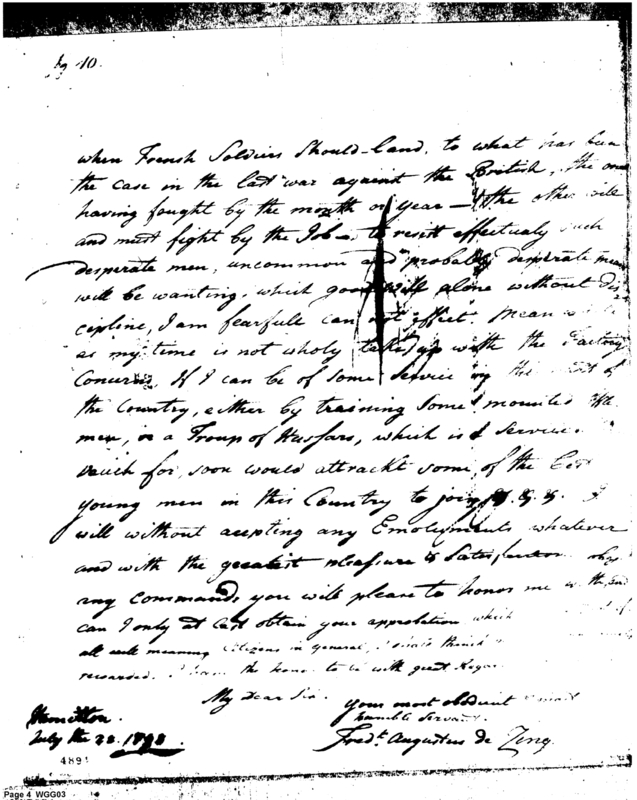 40.
when French Soldiers Should land, to what has been
the case in the last war against the British, the one
having fought by the month or year — the other will
and must fight by the Job — to resist effectualy such
desperate men, uncommon and probably desperate mean
will be wanting, which good will alone without dis
cipline, I am fearfull can not effect. Mean
as my time is not wholy taken up with the Factory
Concerns, If I can be of some Service the of
the Country, either by training some mounted
men, or a Troup of Hussars, which is a Service
vouch for, soon would attrackt some of the
young men in this Country to join &. &. &. I
will without acepting any Emolyments whatever
and with the greatest pleasure & Satisfaction obey
any commands you will please to honor me with, and
can I only at last obtain your approbation which of
all well meaning Citizens in general,
rewarded. I have the honor to be with great Regar
My Dear Sir.
your most obedient
humble Servant
Hamilton.
July the 22. 1798
Fredk. Augustus de Zeng
489
Page 4 WGG03